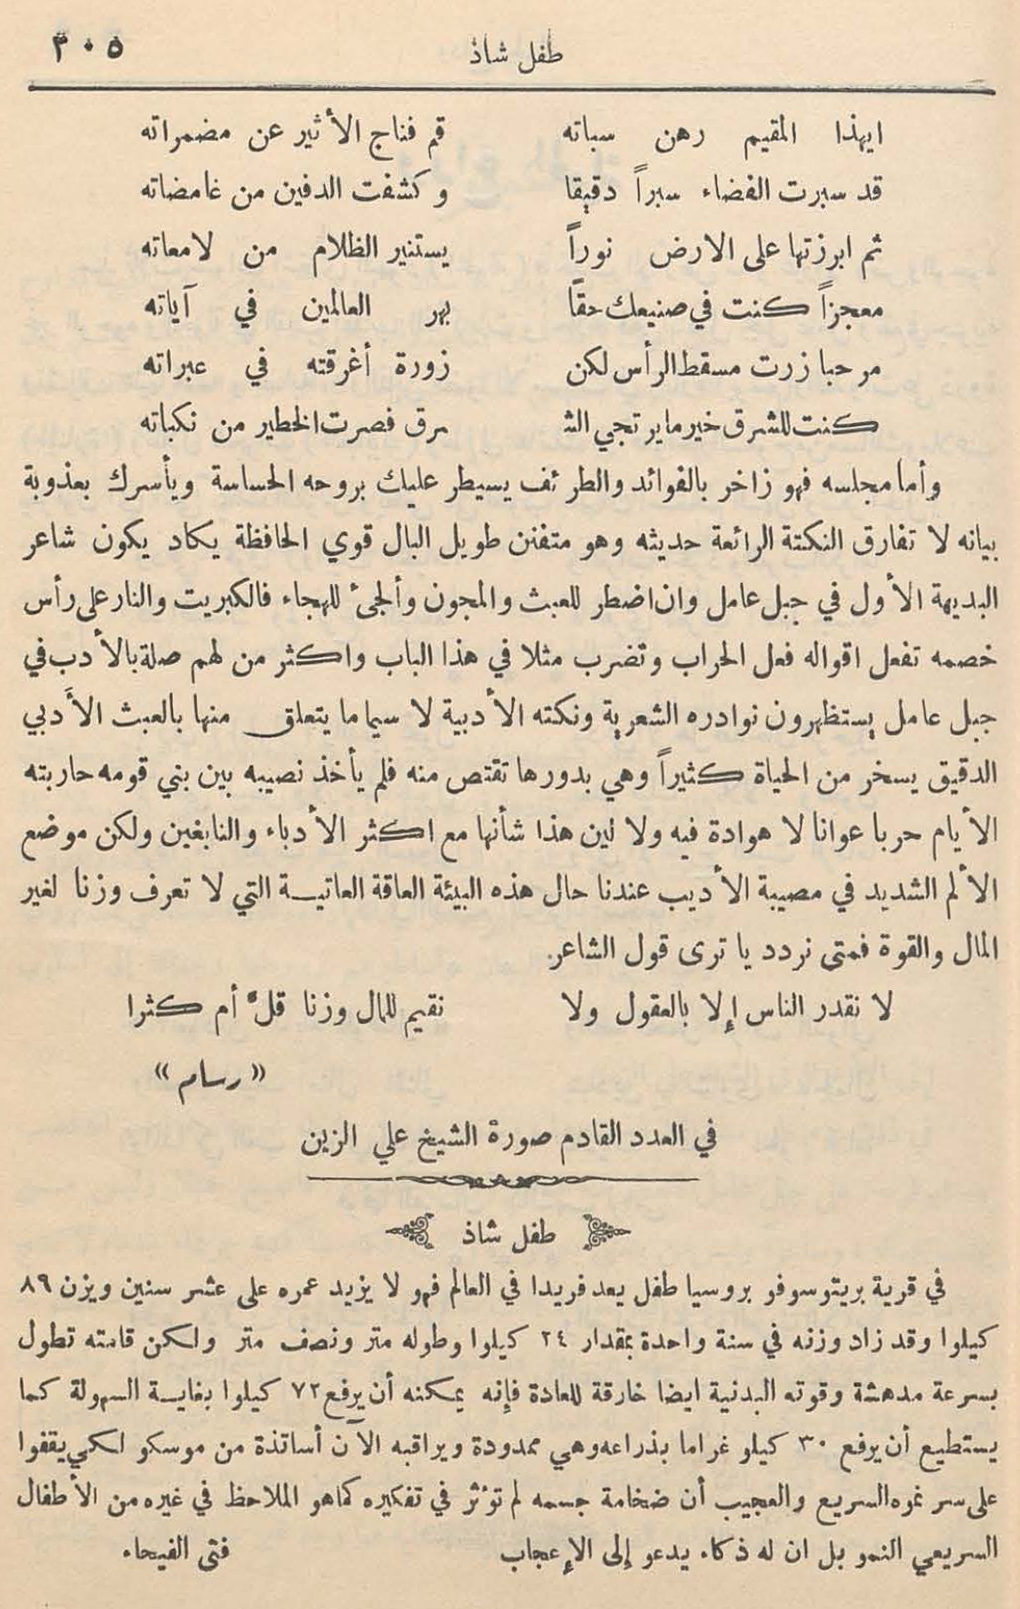 طفل شاذ ٣٠٥
ايهذا المقيم رهن سباته قم فناج الأثير عن مضمراته
قد سبرت الفضاء سبراً دقيقا وكشفت الدفين من غامضاته
ثم ابرزتها على الارض نوراً يستنير الظلام من لامعاته
معجزاً كنت في صنيعك حقاً بهر العالمين في آياته
مرحبا زرت مسقط الرأس لكن زورة أغرقته في عبراته
كنت للشرق خير ما يرتجي الشـ ـرق فصرت الخطير من نكباته
وأما مجلسه فهو زاخر بالفوائد والطرئف يسيطر عليك بروحه الحساسة ويأسرك بعذوبة
بيانه لا تفارق النكتة الرائعة حديثه وهو متفنن طويل البال قوي الحافظة يكاد يكون شاعر
البديهة الأول في جبل عامل وان اضطر للعبث والمجون وألجئ للهجاء فالكبريت والنار على رأس
خصمه تفعل اقواله فعل الحراب وتضرب مثلا في هذا الباب واكثر من لهم صلة بالأدب في
جبل عامل يستظهرون نوادره الشعرية ونكته الأدبية لا سيما ما يتعلق منها بالعبث الأدبي
الدقيق يسخر من الحياة كثيراً وهي بدورها تقتص منه فلم يأخذ نصيبه بين بني قومه حاربته
الأيام حربا عوانا لا هوادة فيه ولا لين هذا شأنها مع اكثر الأدباء والنابغين ولكن موضع
الألم الشديد في مصيبة الأديب عندنا حال هذه البيئة العاقة العاتيـة التي لا تعرف وزنا لغير
المال والقوة فمتى نردد يا ترى قول الشاعر.
لا نقدر الناس إلا بالعقول ولا نقيم للمال وزنا قلّ أم كثرا
« رسام »
في العدد القادم صورة الشيخ علي الزين
طفل شاذ
في قرية بريتوسوفو بروسيا طفل يعد فريدا في العالم فهو لا يزيد عمره على عشر سنين ويزن ٨٩
كيلوا وقد زاد وزنه في سنة واحدة بمقدار ٢٤ كيلوا وطوله متر ونصف متر ولكن قامته تطول
بسرعة مدهشة وقوته البدنية ايضا خارقة للعادة فإنه يمكنه أن يرفع ٧٢ كيلوا بغايـة السهولة كما
يستطيع أن يرفع ٣٠ كيلو غراما بذراعه وهي ممدودة ويراقبه الآن أساتذة من موسكو لكي يقفوا
على سر نموه السريع والعجيب أن ضخامة جسمه لم تؤثر في تفكيره كما هو الملاحظ في غيره من الأطفال
السريعي النمو بل ان له ذكاء يدعو إلى الإعجاب فتى الفيحاء